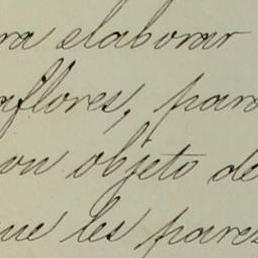 ra elaborar
aflores, para
con objeto de
que les parez